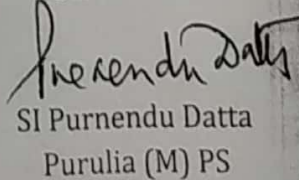 Purnendu Datta
SI Purnendu Datta
Purulia (M) PS